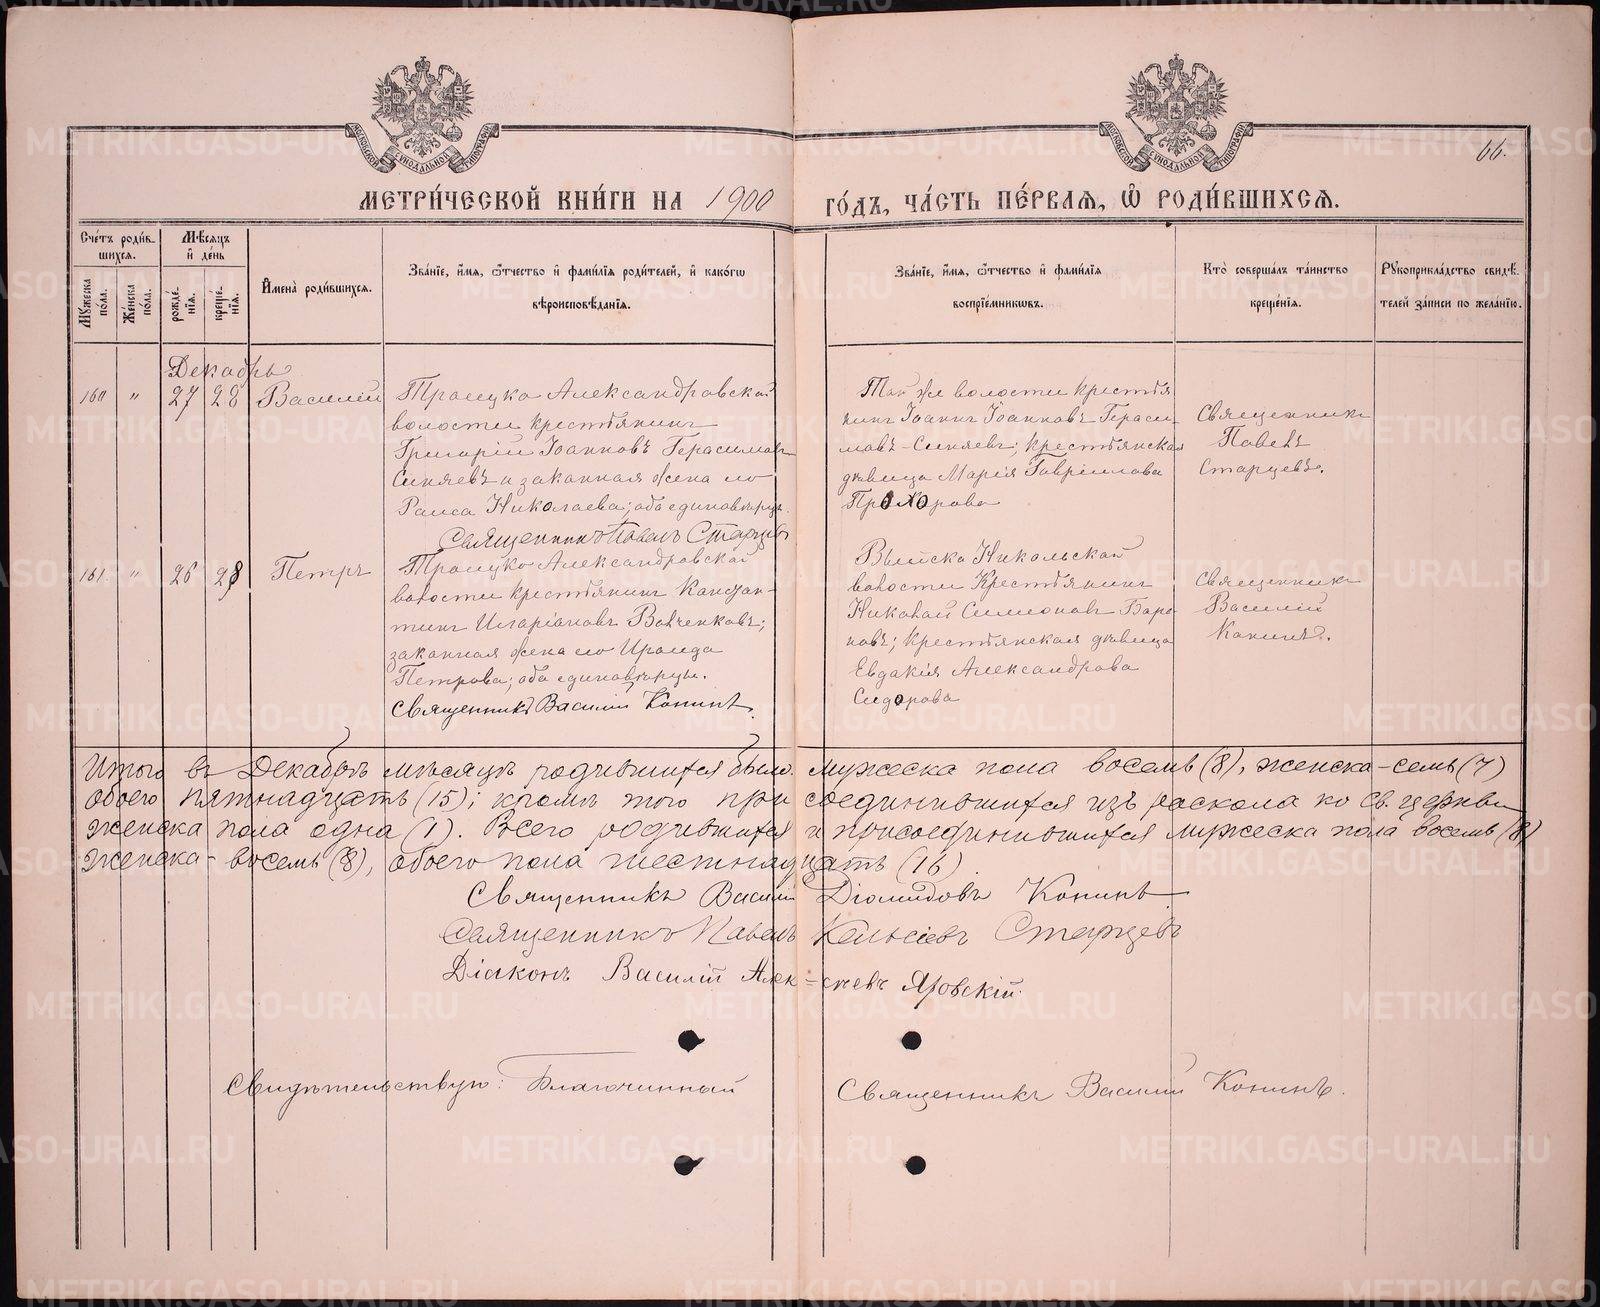 66.
МОСКОВСКОЙ СѴНОДАЛЬНОЙ ТИПОГРАФІИ
МЕТРИ́ЧЕСКОЙ КНИ́ГИ НА 1900 ГО́ДЪ, ЧА́СТЬ ПЕ́РВАЯ, Ѽ РОДИ́ВШИХСЯ.
Сче́тъ роди́вшихся.
Мꙋжеска по́ла.
Же́нска по́ла.
Мѣ́сяцъ и҆ де́нь
рожде́нїя.
креще́нїя.
И҆мена̀ роди́вшихся.
Зва́нїе, и҆́мя, ѻ҆́тчество и҆ фами́лїя роди́телей, и҆ како́гѡ вѣроисповѣ́данїя.
Зва́нїе, и҆́мя, ѻ҆́тчество и҆ фами́лїя воспрїе́мникѡвъ.
Кто̀ соверша́лъ та́инство креще́нїя.
Рꙋкоприкла́дство свидѣ́телей за́писи по жела́нїю.
Декабрь
160 " 27 28 Василій
Троицко Александровской
волости крестьянинъ
Григорій Іоанновъ Герасимовъ
Синяевъ и законная жена его
Раиса Николаева; оба единовѣрцы.
Священникъ Павелъ Старцевъ
Той же волости крестья
нинъ Іоаннъ Іоанновъ Гераси
мовъ-Синяевъ; крестьянская
дѣвица Марія Гавріилова
Прохорова
Священникъ
Павелъ
Старцевъ.
161. " 26 28 Петръ
Троицко Александровской
волости крестьянинъ Констан-
тинъ Иларіоновъ Волченковъ;
законная жена его Ираида
Петрова; оба единовѣрцы.
Священникъ Василій Конинъ.
Выйско Никольской
волости Крестьянинъ
Николай Симеоновъ Баро
новъ; крестьянская дѣвица
Евдокія Александрова
Сидорова
Священникъ
Василій
Конинъ.
Итого въ Декабрѣ мѣсяцѣ родившихся было: мужеска пола восемь (8), женска-семь (7)
обоего пятнадцать (15); кромѣ того присоединившихся изъ раскола ко Св. церкви
женска пола одна (1). Всего родившихся и присоединившихся мужеска пола восемь (8)
женска-восемь (8), обоего пола шестнадцать (16)
Священникъ Василій Діомидовъ Конинъ.
Священникъ Павелъ Келсіевъ Старцевъ
Діаконъ Василій Алек=сѣевъ Яровскій.
Свидѣтельствую: Благочинный Священникъ Василій Конинъ.
METRIKI.GASO-URAL.RU